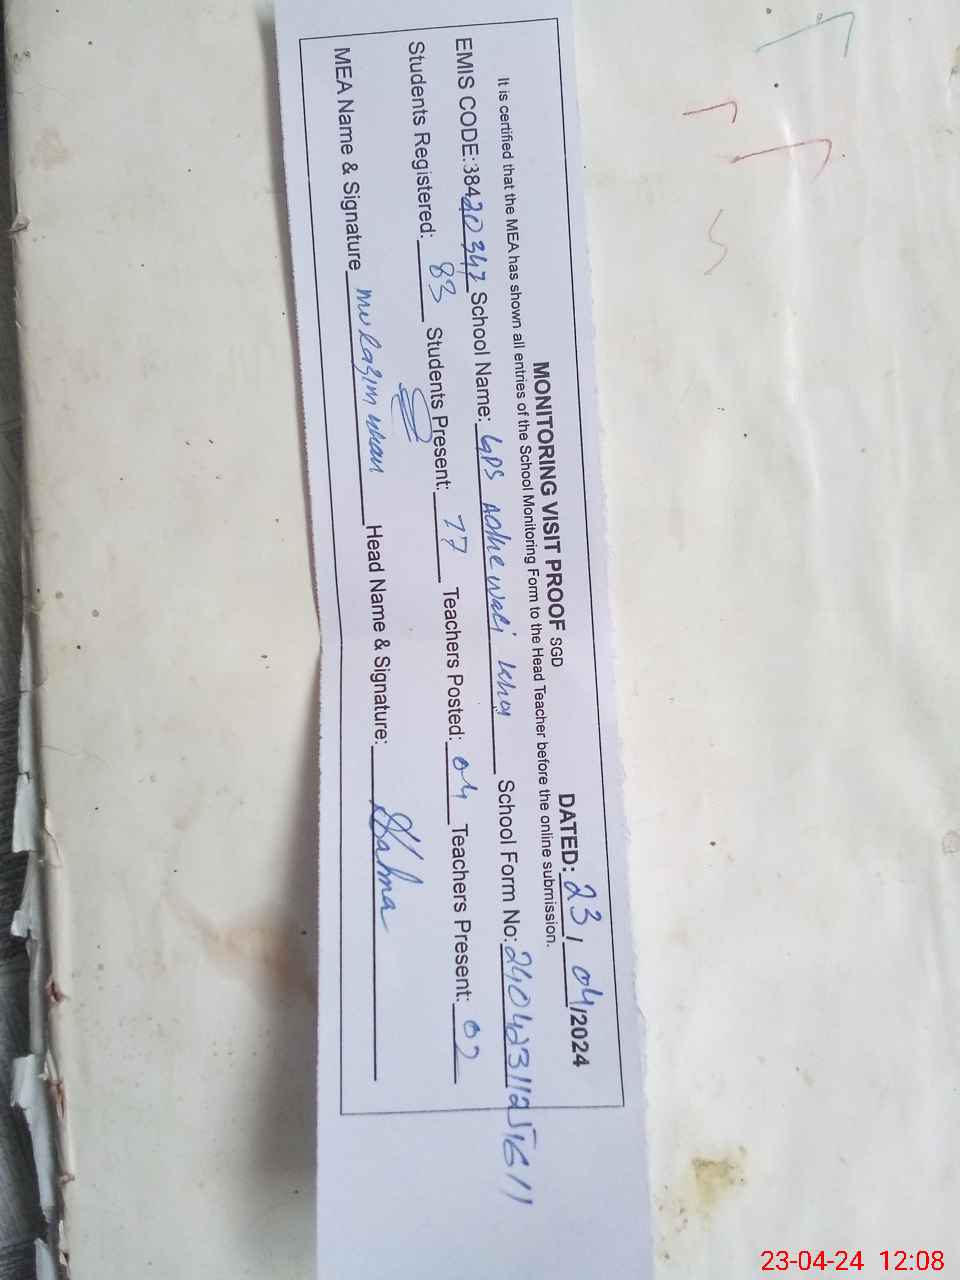 MONITORING VISIT PROOF SGD DATED: 23, 04/2024
It is certified that the MEA has shown all entries of the School Monitoring Form to the Head Teacher before the online submission.
EMIS CODE:38420347 School Name: GPS School Form No: 24042311251611
Students Registered: 83 Students Present: 77 Teachers Posted: 04 Teachers Present: 02
MEA Name & Signature mulazim khan Head Name & Signature:
23-04-24 12:08